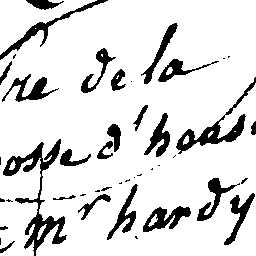 re de la
osse d'hous
mr hardy